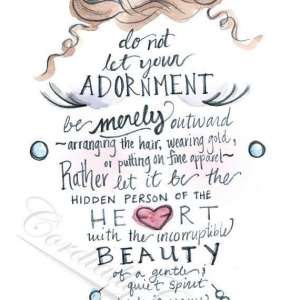 do not
let your
ADORNMENT
be merely outward
~arranging the hair, wearing gold,
or putting on fine apparel~
Rather let it be the
HIDDEN PERSON OF THE
HE RT
with the incorruptible
BEAUTY
of a gentle &
quiet spirit